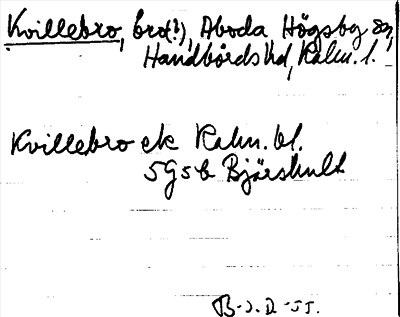 Kvillebro, bro(?), Aboda Högsby sn,
Handbörds hd, Kalm. l.
Kvillebro ek Kalm. bl.
5G5b Bjärshult